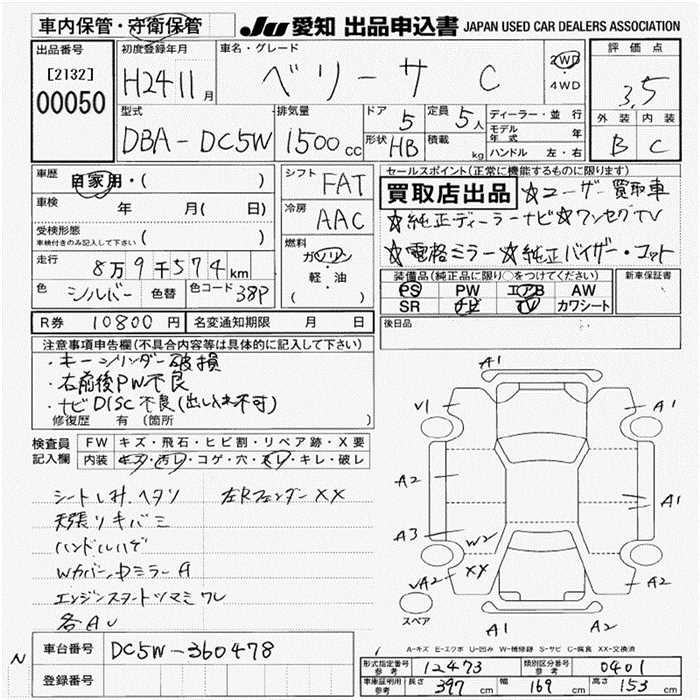 車内保管・守衛保管 JU 愛知 出品申込書 JAPAN USED CAR DEALERS ASSOCIATION
出品番号 初度登録年月 車名・グレード 評価点
[2132] H24 11月 ベリーサ C 2WD・4WD 3.5
00050
型式 排気量 ドア 定員 ディーラー・並行 外装 内装
DBA-DC5W 1500cc 5 5人 モデル年式 年 B C
形状 HB 積載 kg ハンドル 左・右
車歴 自家用・( ) シフト FAT セールスポイント(正常に機能するものに限ります)
車検 年 月( 日) 冷房 AAC 買取店出品 ☆ユーザー買取車
受検形態 ( ) ☆純正ディーラーナビ☆ワンセグTV
車検付きのみ記入して下さい 燃料 ガソリン ☆電格ミラー☆純正バイザー・マット
走行 8万9千574km 軽・油
( )
装備品(純正品に限り○をつけてください) 新車保証書
色 シルバー 色替 色コード 38P PS PW エアB AW
SR ナビ TV カワシート
R券 10800円 名変通知期限 月 日 後日品
注意事項申告欄(不具合内容等は具体的に記入して下さい)
・キーシリンダー破損
・右前後PW不良
・ナビDISC不良(出し入れ不可)
修復歴 有(箇所 )
検査員記入欄 FW キズ・飛石・ヒビ割・リペア跡・X要
内装 キズ・汚レ・コゲ・穴・スレ・キレ・破レ
シート 左RフェンダーXX
天張リキバミ
ハンドルハゲ
Wカバー、ミラーA
エンジンスタートツマミワレ
各AU
A1
V1 A1
A2 A1
A3 W2
VA2 XX A2
スペア A1 A2
A-キズ E-エクボ U-凹み W-補修跡 S-サビ C-腐食 XX-交換済
N 車台番号 DC5W-360478
登録番号
形式指定番号 参考 12473 類別区分番号 参考 0401
車庫証明用 参考 長さ 397cm 幅 169cm 高さ 153cm